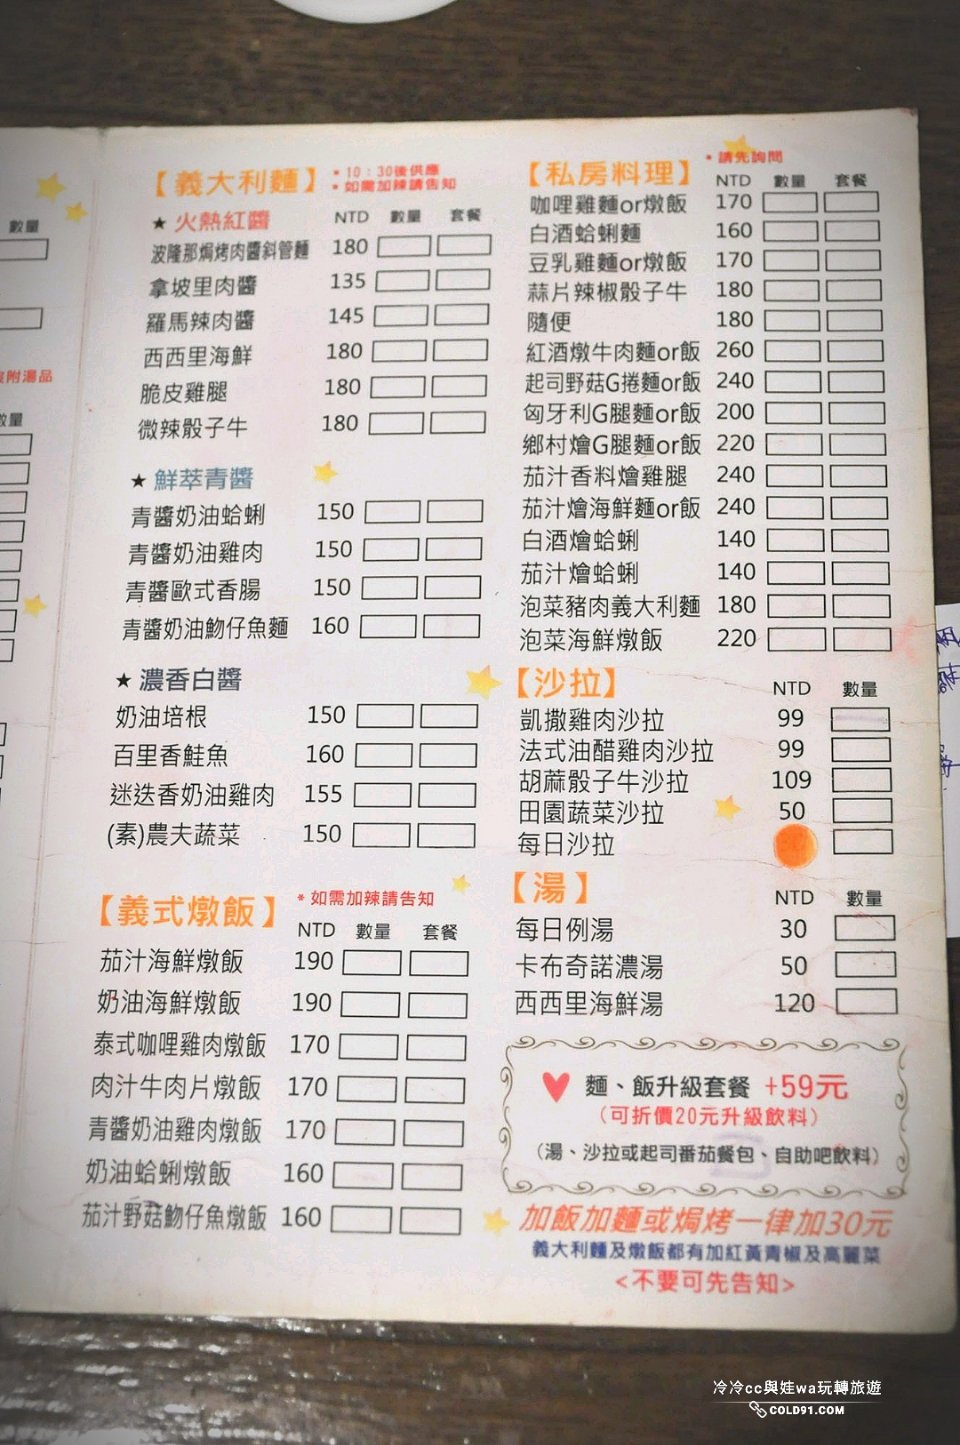 數量
附湯品
數量
【義大利麵】
*10:30後供應
*如需加辣請告知
★火熱紅醬 NTD 數量 套餐
波隆那焗烤肉醬斜管麵 180
拿坡里肉醬 135
羅馬辣肉醬 145
西西里海鮮 180
脆皮雞腿 180
微辣骰子牛 180
★鮮萃青醬
青醬奶油蛤蜊 150
青醬奶油雞肉 150
青醬歐式香腸 150
青醬奶油魩仔魚麵 160
★濃香白醬
奶油培根 150
百里香鮭魚 160
迷迭香奶油雞肉 155
(素)農夫蔬菜 150
【義式燉飯】 *如需加辣請告知
NTD 數量 套餐
茄汁海鮮燉飯 190
奶油海鮮燉飯 190
泰式咖哩雞肉燉飯 170
肉汁牛肉片燉飯 170
青醬奶油雞肉燉飯 170
奶油蛤蜊燉飯 160
茄汁野菇魩仔魚燉飯 160
【私房料理】 *請先詢問
NTD 數量 套餐
咖哩雞麵or燉飯 170
白酒蛤蜊麵 160
豆乳雞麵or燉飯 170
蒜片辣椒骰子牛 180
隨便 180
紅酒燉牛肉麵or飯 260
起司野菇G捲麵or飯 240
匈牙利G腿麵or飯 200
鄉村燴G腿麵or飯 220
茄汁香料燴雞腿 240
茄汁燴海鮮麵or飯 240
白酒燴蛤蜊 140
茄汁燴蛤蜊 140
泡菜豬肉義大利麵 180
泡菜海鮮燉飯 220
【沙拉】 NTD 數量
凱撒雞肉沙拉 99
法式油醋雞肉沙拉 99
胡蔴骰子牛沙拉 109
田園蔬菜沙拉 50
每日沙拉
【湯】 NTD 數量
每日例湯 30
卡布奇諾濃湯 50
西西里海鮮湯 120
麵、飯升級套餐 +59元
(可折價20元升級飲料)
(湯、沙拉或起司番茄餐包、自助吧飲料)
加飯加麵或焗烤一律加30元
義大利麵及燉飯都有加紅黃青椒及高麗菜
<不要可先告知>
冷冷cc與娃wa玩轉旅遊
COLD91.COM